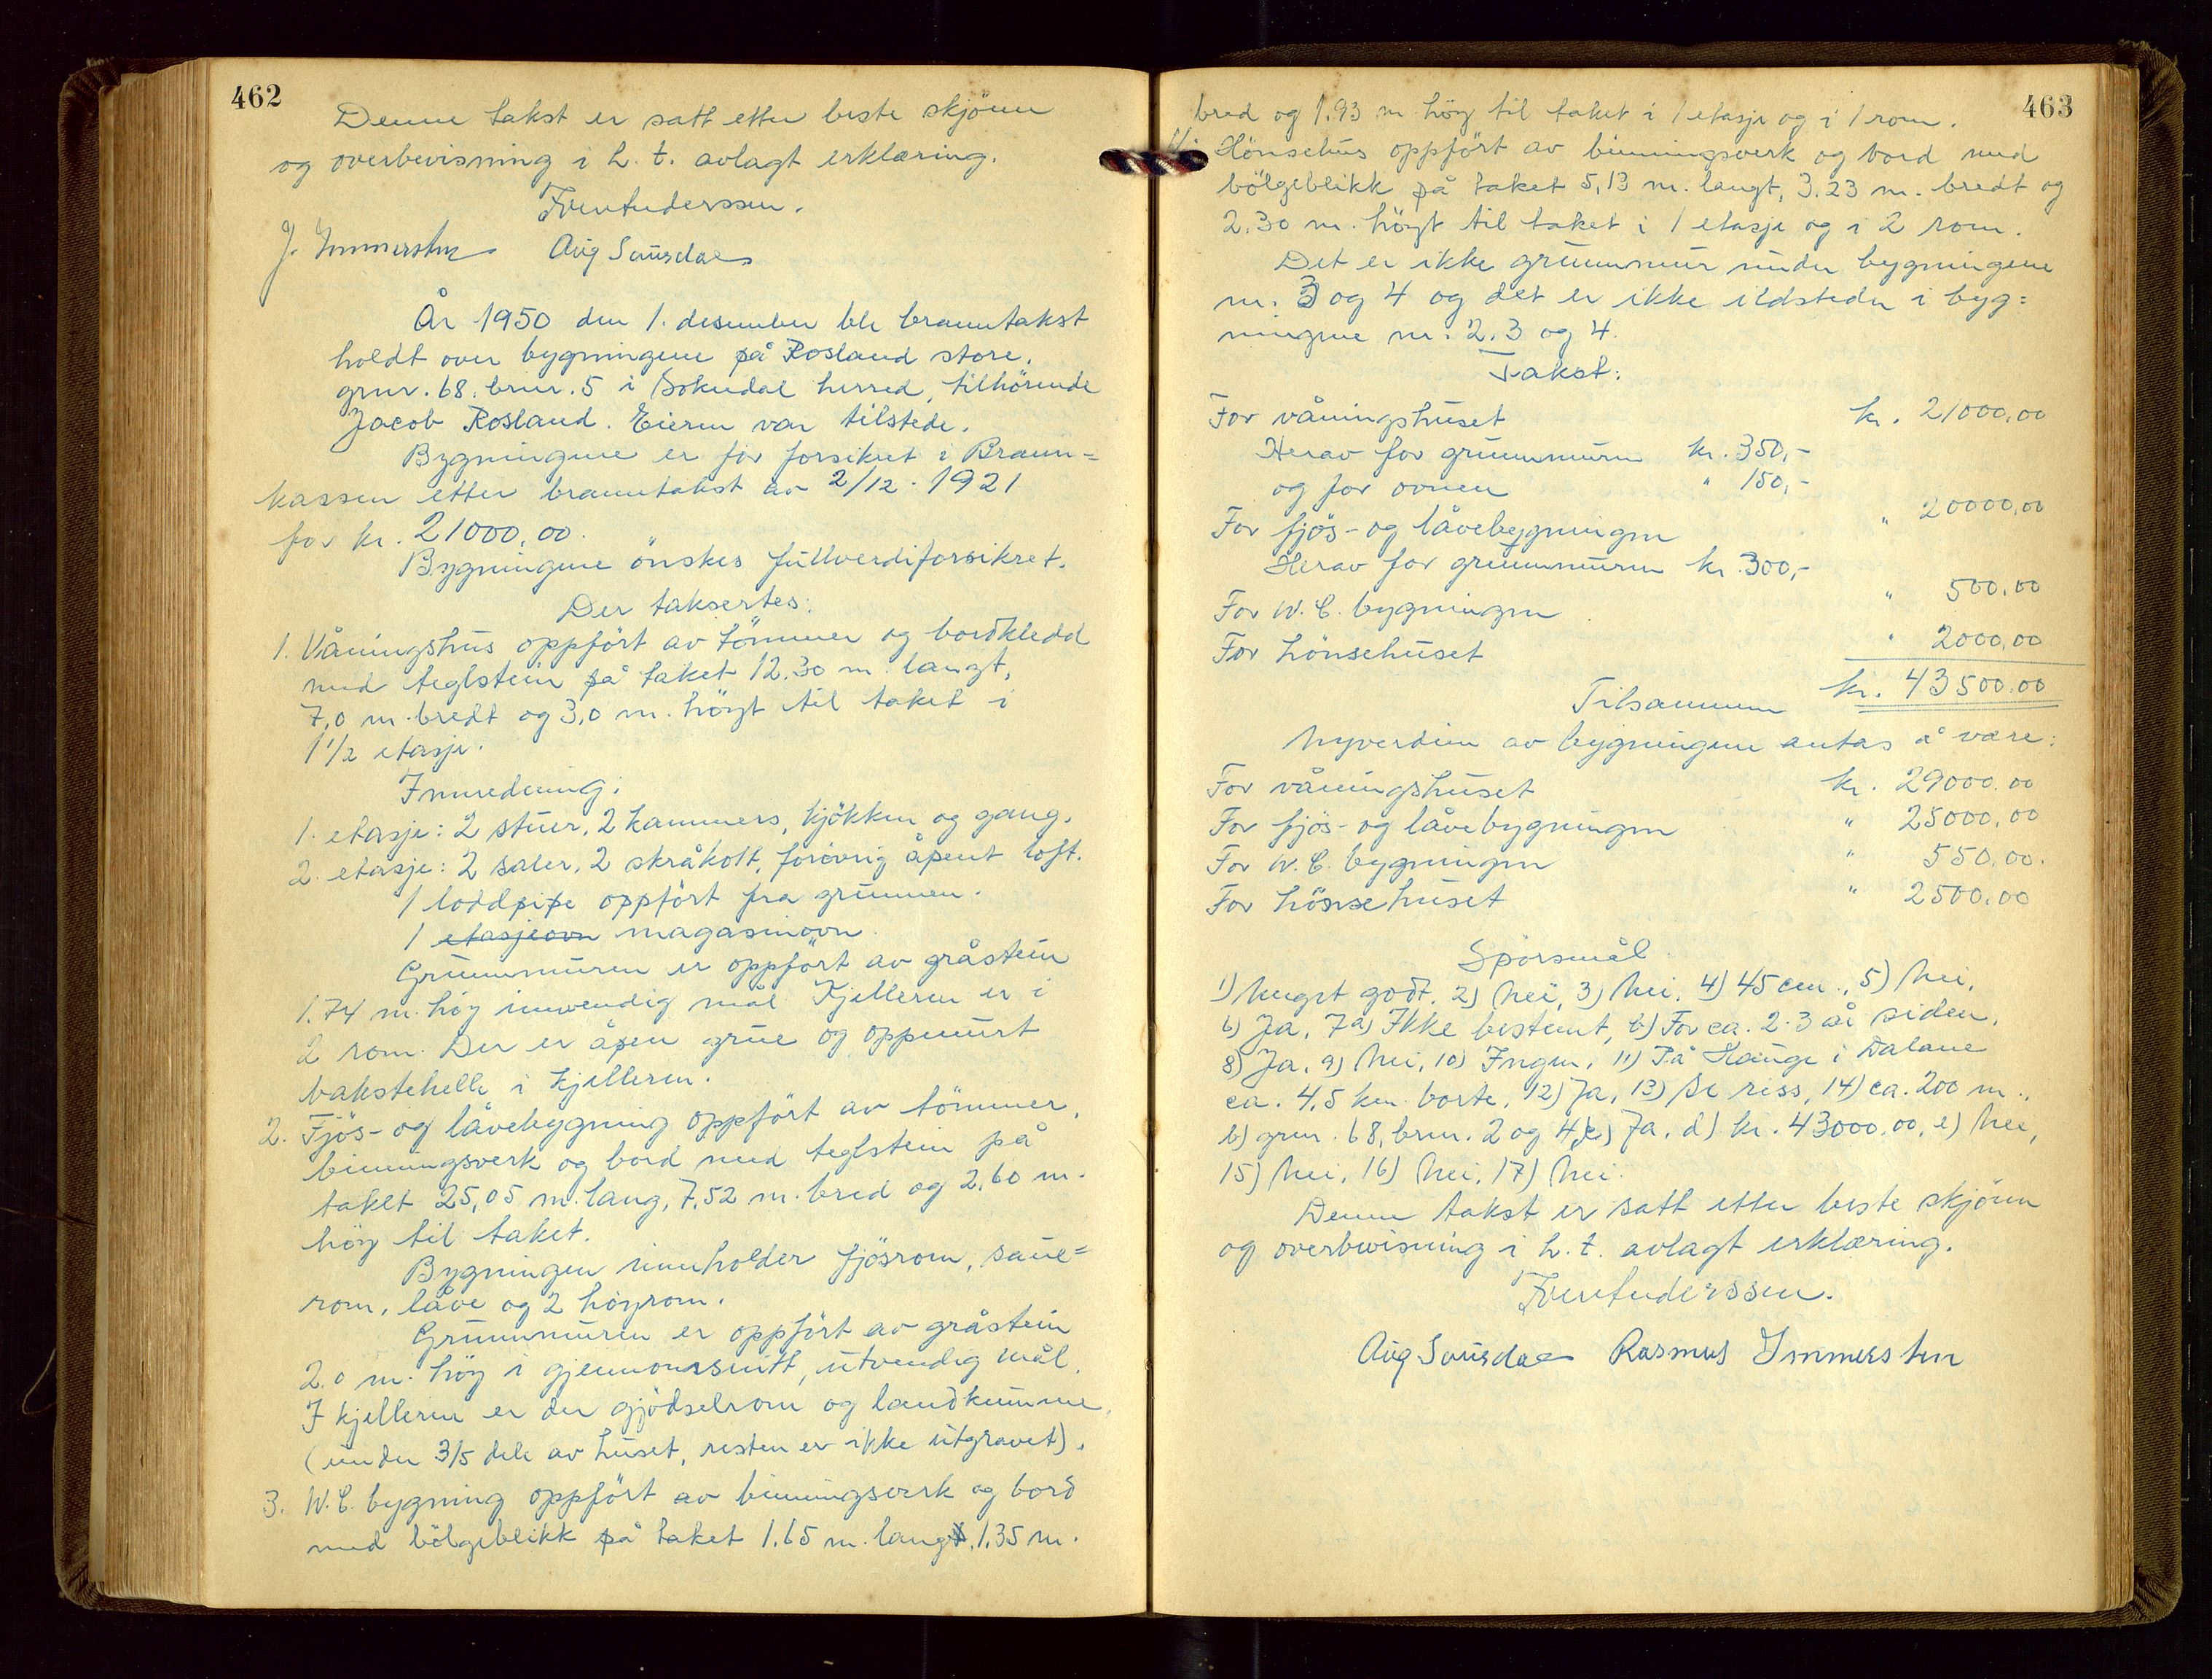 462
Denne takst er satt etter beste skjönn
og overbevisning i h. t. avlagt erklæring.
Aug Sausdal
År 1950 den 1. desember ble branntakst
holdt over bygningene på Rosland store,
gnr. 68. brnr. 5 i Sokndal herred, tilhörende
Jacob Rosland. Eieren var tilstede.
Bygningene er för forsikret i Brann=
kassen etter branntakst av 2/12. 1921
for kr. 21000,00.
Bygningene önskes fullverdiforsikret.
Der taksertes:
1. Våningshus oppfört av tömmer og bordkledd
med teglstein på taket 12.30 m. langt,
7,0 m. bredt og 3,0 m. höyt til taket i
1 1/2 etasje.
Innredning:
1. etasje: 2 stuer, 2 kammers, kjökken og gang.
2. etasje: 2 saler, 2 skråkott, forövrig åpent loft.
1 loddpipe oppfört fra grunnen.
1 etasjeovn magasinovn
Grunnmuren er oppfört av gråstein
1.74 m. höy innvendig mål Kjelleren er i
2 rom. Der er åpen grue og oppmurt
bakstehelle i kjelleren.
2. Fjös- og låvebygning oppfört av tömmer,
binningsverk og bord med teglstein på
taket 25,05 m. lang, 7,52 m. bred og 2,60 m.
höy til taket.
Bygningen inneholder fjösrom, saue=
rom, låve og 2 höyrom.
Grunnmuren er oppfört av gråstein
2.0 m. höy i gjennomsnitt, utvendig mål.
I kjelleren er der gjödselrom og landkumme
(under 3/5 dele av huset, resten er ikke utgravet).
3. W.C. bygning oppfört av binningsverk og bord
med bölgeblikk på taket 1.65 m. lang, 1.35 m.
463
bred og 1.93 m höy til taket i 1 etasje og i 1 rom.
4. Hönsehus oppfört av binningsverk og bord med
bölgeblikk på taket 5,13 m. langt, 3.23 m. bredt og
2.30 m. höyt til taket i 1 etasje og i 2 rom.
Det er ikke grunnmur under bygningene
nr. 3 og 4 og det er ikke ildsteder i byg=
ningene nr. 2. 3 og 4.
Takst:
For våningshuset kr. 21000,00
Herav for grunnmuren kr. 350,-
og for ovnen " 150,-
For fjös- og låvebygningen " 20000,00
Herav for grunnmuren kr. 300,-
For W.C. bygningen " 500.00
For hönsehuset " 2000,00
Tilsammen kr. 43500.00
Nyverdien av bygningene antas å være:
For våningshuset kr. 29000.00
For fjös- og låvebygningen " 25000,00
For W.C. bygningen " 550,00.
For hönsehuset " 2500,00
Spörsmål
1) Meget godt, 2) Nei, 3) Nei, 4) 45 cm., 5) Nei,
6) Ja, 7a) Ikke bestemt, b) For ca. 2-3 år siden,
8) Ja, 9) Nei, 10) Ingen, 11) På Hauge i Dalane
ca. 4,5 km. borte, 12) Ja, 13) Se riss, 14) ca. 200 m.,
b) gnr. 68, brnr. 2 og 4, c) Ja, d) kr. 43000.00, e) Nei,
15) Nei, 16) Nei, 17) Nei.
Denne takst er satt etter beste skjönn
og overbevisning i h. t. avlagt erklæring.
Aug Sausdal Rasmus Immerstein